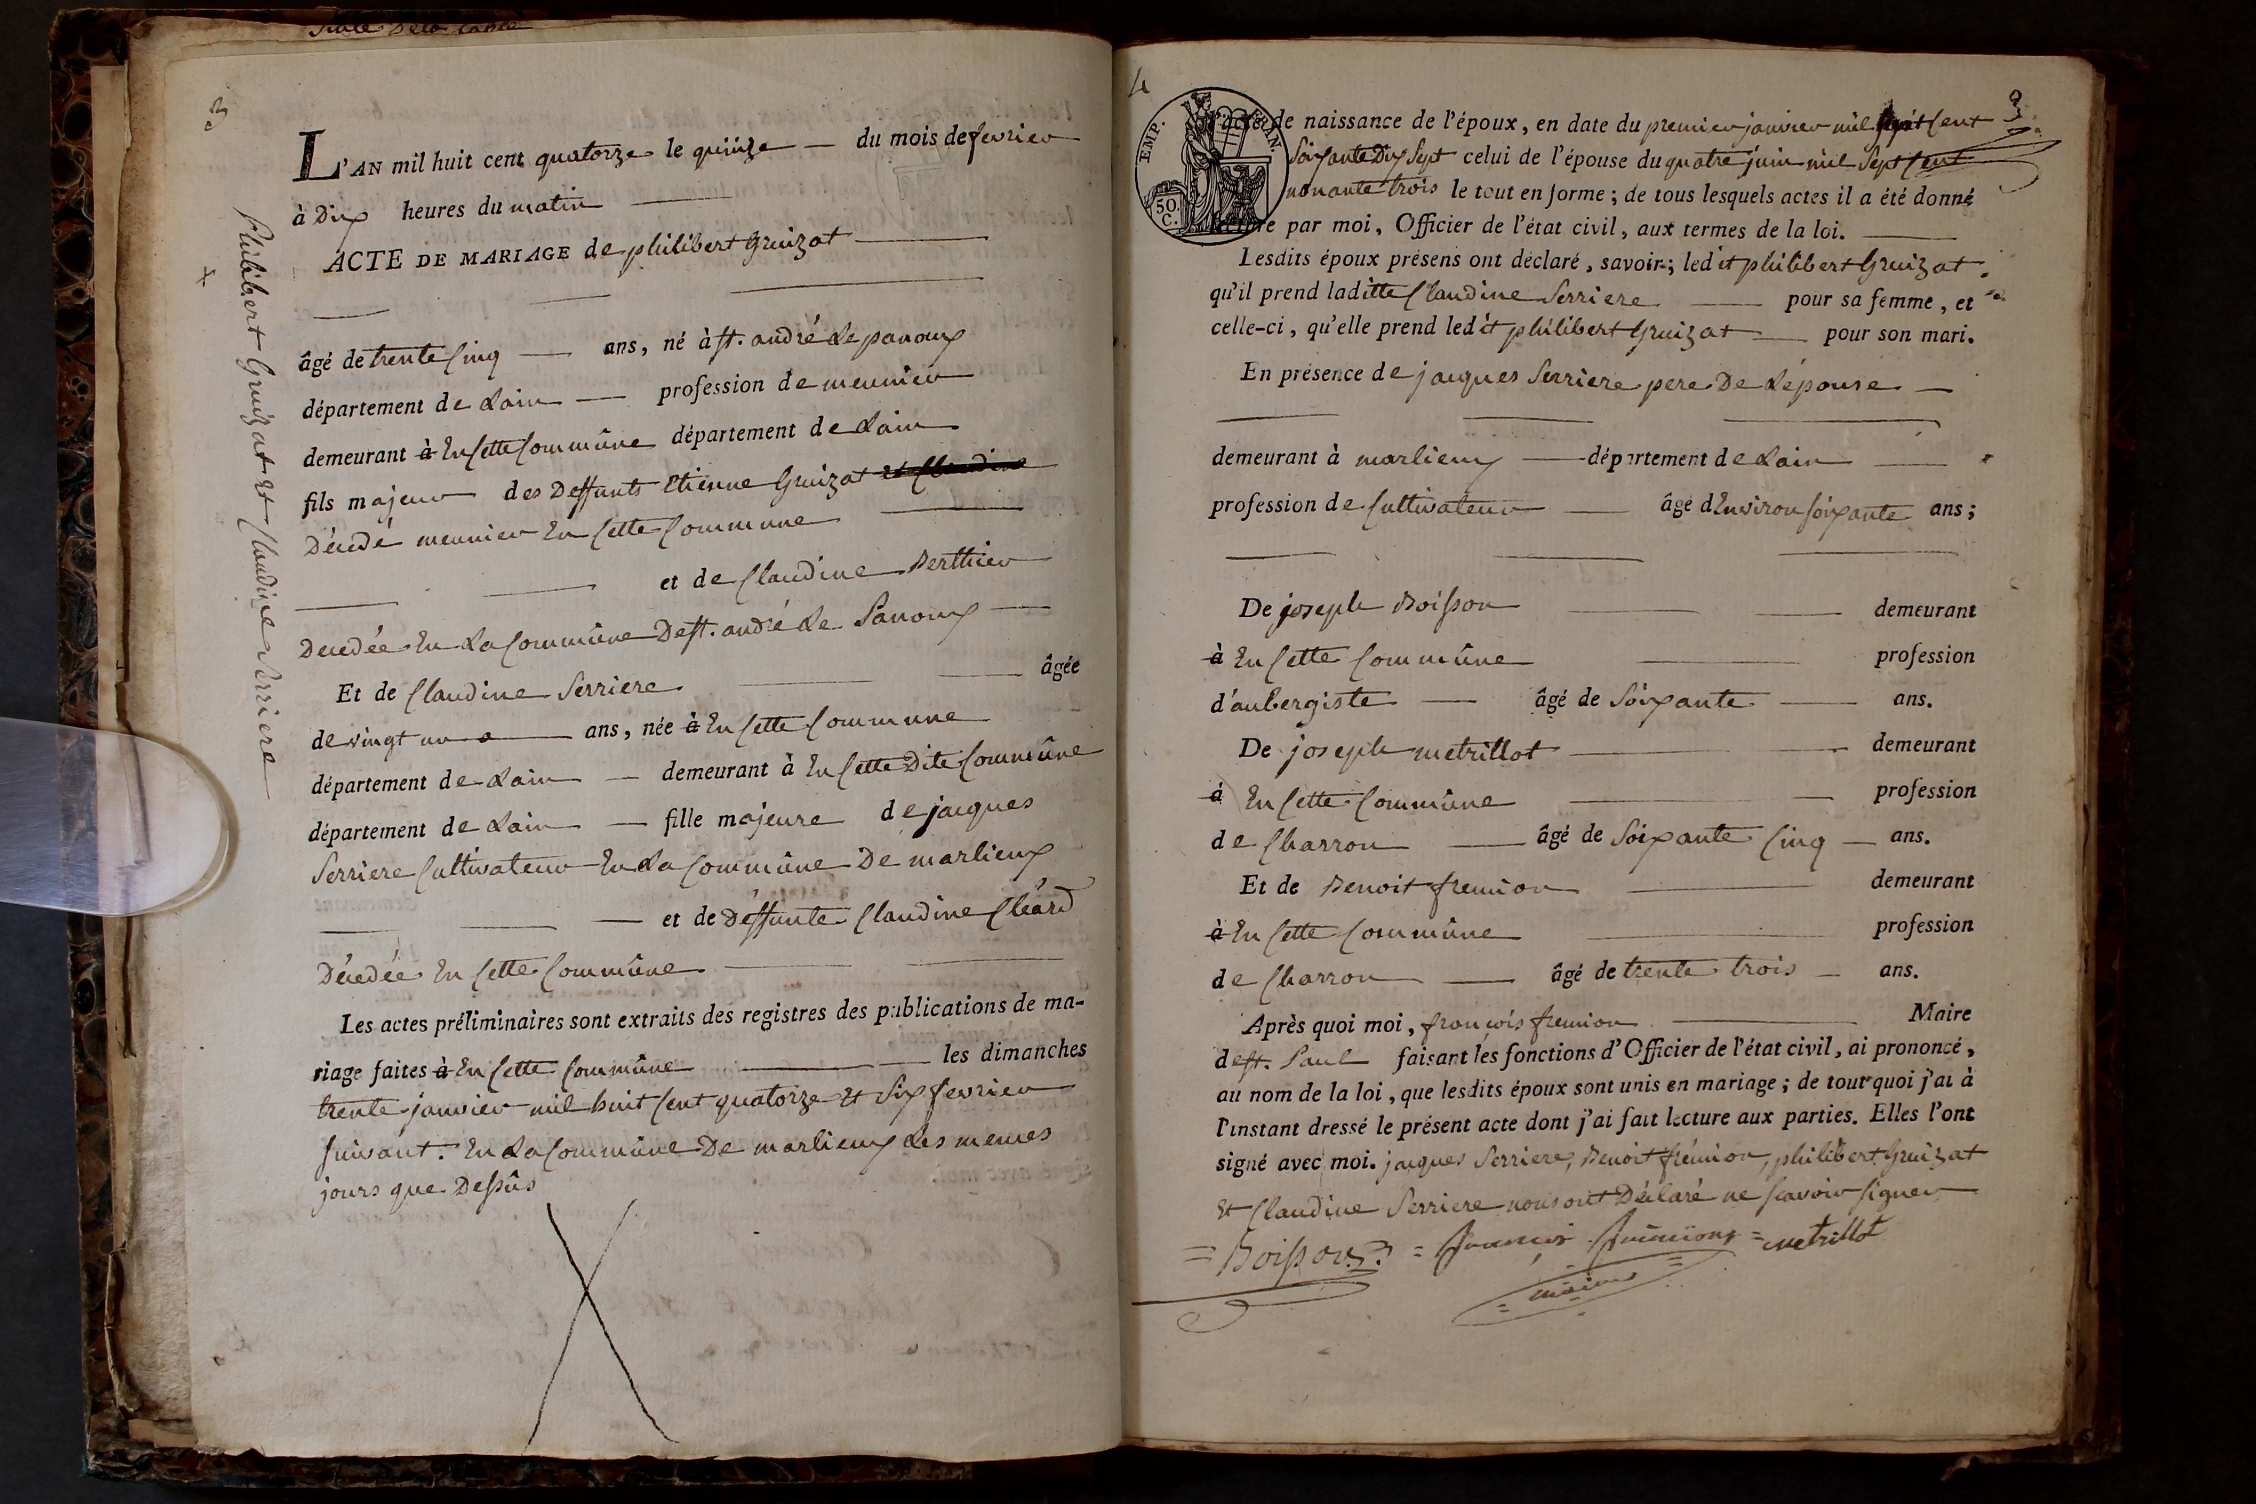 3
L'AN mil huit cent quatorze le quinze du mois de fevrier
à Dix heures du matin
ACTE DE MARIAGE de philibert Gruizat
âgé de trente Cinq ans, né à st. andré Le panoux
département de Lain profession de meunier
demeurant à En Cette Commûne département de Lain
fils majeur des Deffunts Etienne Gruizat et Claudine
Décédé meunier En Cette Commune
et de Claudine Berthier
Decedée En La Commûne De st. andré Le Panoux
Et de Claudine Serriere âgée
de vingt un ans, née à En Cette Commune
département de Lain demeurant à En Cette Dite Commûne
département de Lain fille majeure de jacques
Serriere Cultivateur En La Commûne De marlieux
et de Déffunte Claudine Cléard
Décedée En Cette Commûne
Les actes préliminaires sont extraits des registres des publications de ma-
riage faites à En Cette Commûne les dimanches
trente janvier mil huit Cent quatorze Et Six fevrier
suivant. En La Commûne De marlieux Les memes
jours que Dessûs
Philibert Gruizat et Claudine Serriere
4
3
EMP. FRAN.
50 C.
l'acte de naissance de l'époux, en date du premier janvier mil Sept Cent
Soixante Dix Sept celui de l'épouse du quatre juin mil Sept Cent
nonante trois le tout en forme ; de tous lesquels actes il a été donné
lecture par moi, Officier de l'état civil, aux termes de la loi.
Lesdits époux présens ont déclaré, savoir ; ledit philibert Gruizat
qu'il prend laditte Claudine Serriere pour sa femme, et
celle-ci, qu'elle prend ledit philibert Gruizat pour son mari.
En présence de jacques Serriere pere De Lépouse
demeurant à marlieux département de Lain
profession de Cultivateur âgé d'Environ soixante ans ;
De joseph Boisson demeurant
à En Cette Commûne profession
d'aubergiste âgé de Soixante ans.
De joseph metrillot demeurant
à En Cette Commûne profession
de Charron âgé de Soixante Cinq ans.
Et de Benoit fremion demeurant
à En Cette Commûne profession
de Charron âgé de trente trois ans.
Après quoi moi, francois fremion Maire
de st. Paul faisant les fonctions d'Officier de l'état civil, ai prononcé,
au nom de la loi, que lesdits époux sont unis en mariage ; de tout quoi j'ai à
l'instant dressé le présent acte dont j'ai fait lecture aux parties. Elles l'ont
signé avec moi. jacques Serriere, Benoit frémion, philibert Gruizat
Et Claudine Serriere nous ont Déclaré ne scavoir signer
= Boisson = francois = metrillot
maire